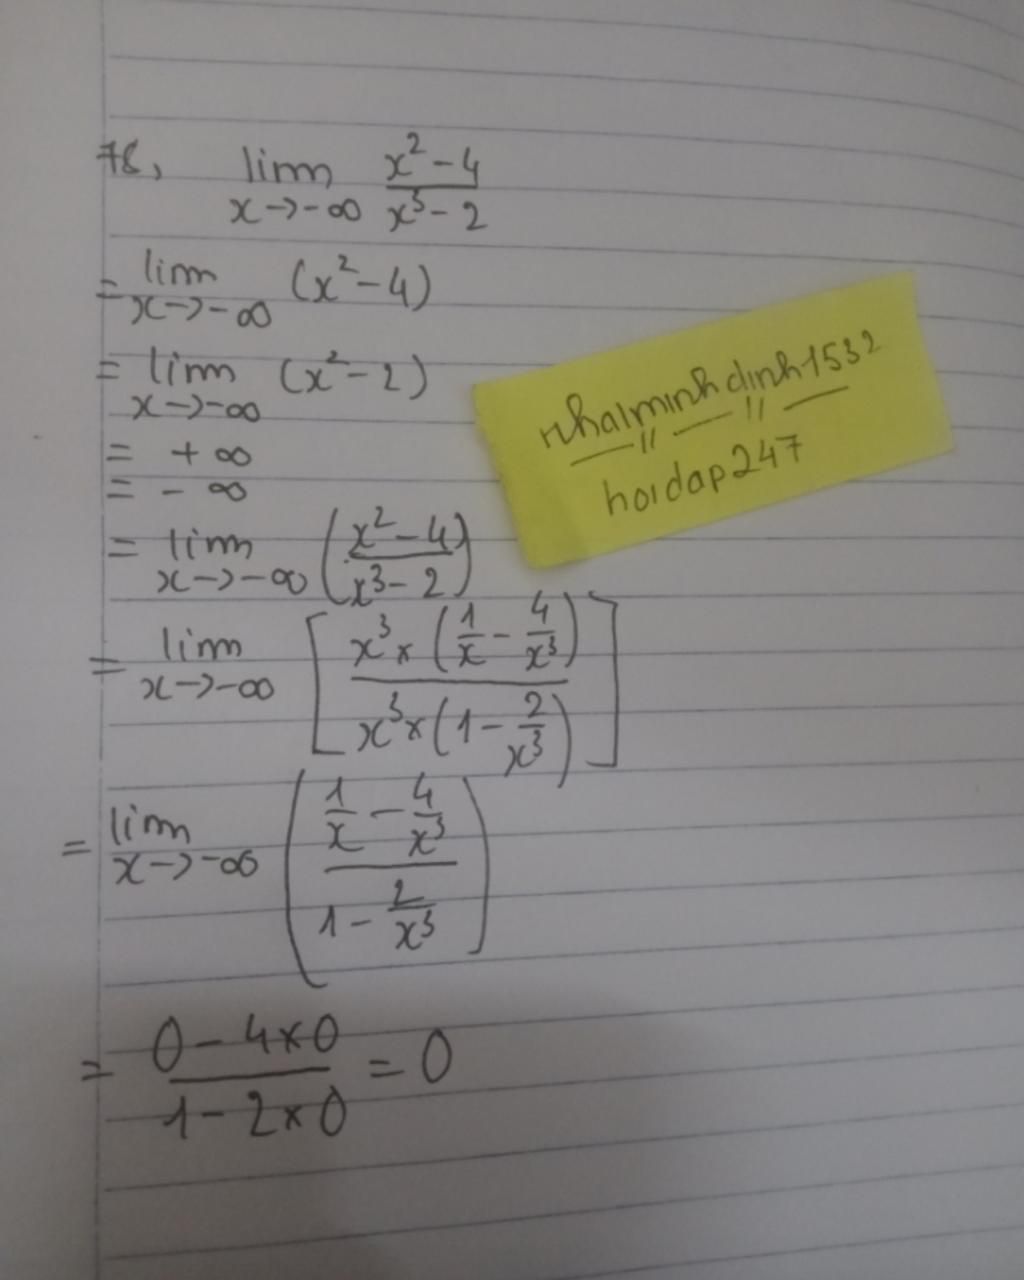 78, lim x→-∞ (x²-4)/(x³-2)
= lim x→-∞ (x²-4)
= lim x→-∞ (x²-2)
= +∞
= -∞
= lim x→-∞ ((x²-4)/(x³-2))
= lim x→-∞ [(x³×(1/x - 4/x³))/(x³×(1 - 2/x³))]
= lim x→-∞ ((1/x - 4/x³)/(1 - 2/x³))
= (0-4×0)/(1-2×0) = 0
nhaiminhdinh1532
hoidap247